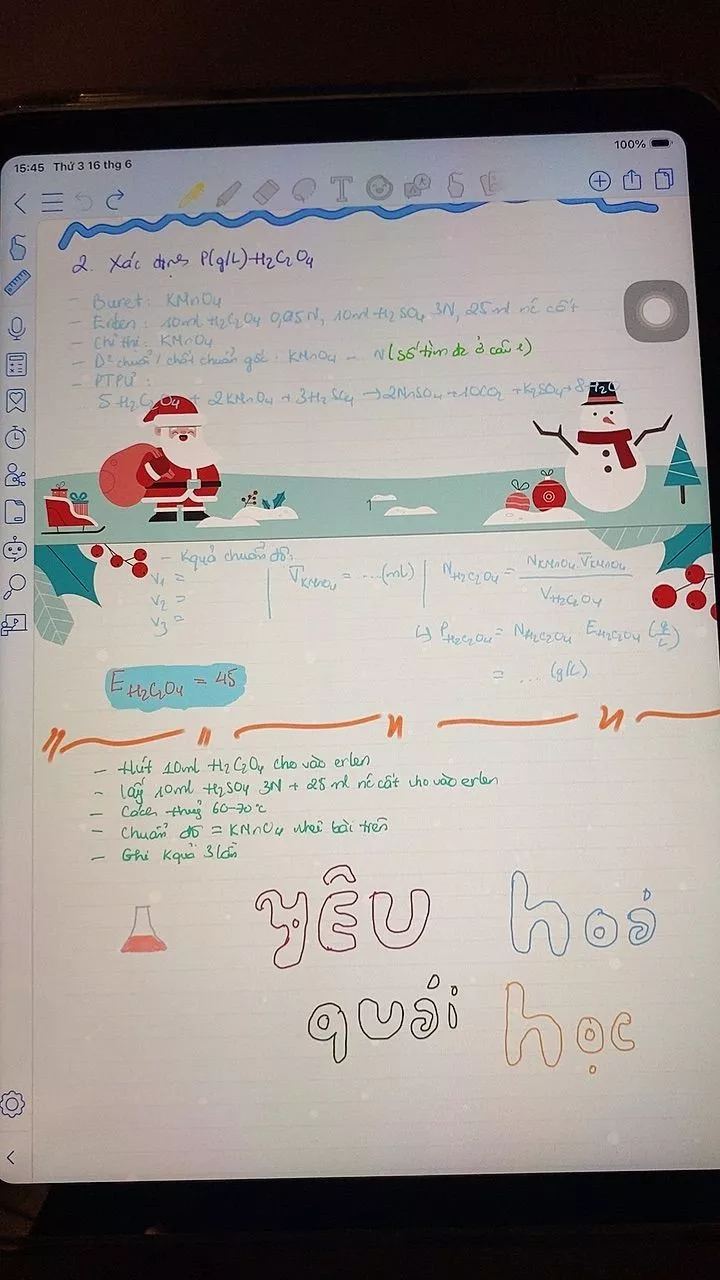 15:45 Thứ 3 16 thg 6
100%
2. Xác định P(g/L) H₂C₂O₄
- Buret: KMnO₄
- Erlen: 10ml H₂C₂O₄ 0,05N, 10ml H₂SO₄ 3N, 25ml nc cất
- Chỉ thị: KMnO₄
- D² chuẩn / chất chuẩn gốc: KMnO₄ - N (số tìm đc ở câu 1)
- PTPƯ:
5H₂C₂O₄ + 2KMnO₄ + 3H₂SO₄ → 2MnSO₄ + 10CO₂ + K₂SO₄ + 8H₂O
1
- Kquả chuẩn độ:
V₁ =
V₂ =
V₃ =
V̅KMnO₄ = ...(mL)
N H₂C₂O₄ = NKMnO₄.V̅KMnO₄ / VH₂C₂O₄
↳ P H₂C₂O₄ = N H₂C₂O₄. E H₂C₂O₄ (g/L)
= ... (g/L)
E H₂C₂O₄ = 45
- Hút 10ml H₂C₂O₄ cho vào erlen
- lấy 10ml H₂SO₄ 3N + 25ml nc cất cho vào erlen
- Cách thuỷ 60-70°C
- Chuẩn độ = KMnO₄ như bài trên
- Ghi Kquả 3 lần
yêu hoá
quái học